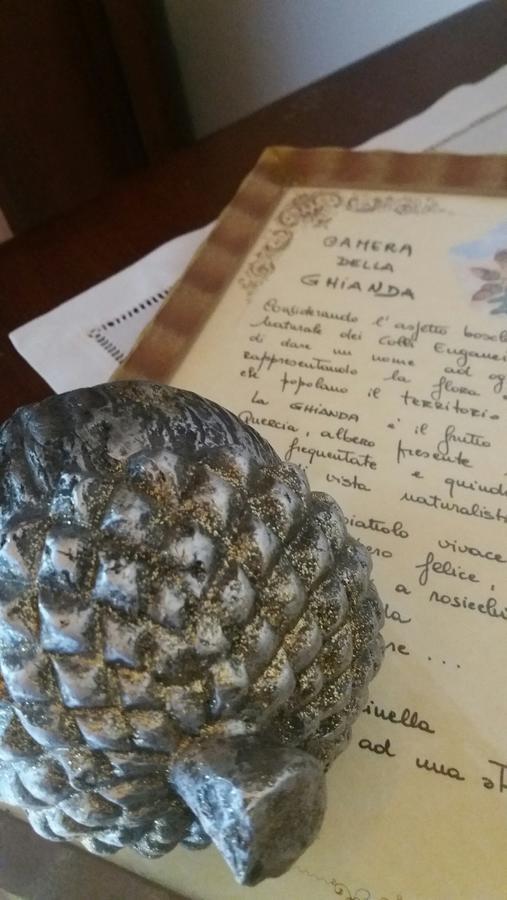 CAMERA
DELLA
GHIANDA
Considerando l'aspetto bosch
naturale dei Colli Euganei
di dare un nome ad og
rappresentando la flora
che popolano il territorio
La GHIANDA e' il frutto
Quercia, albero presente
frequentate e quindi
vista naturalist
vivace
felice,
a rosicchi
la
re ...
inella
ad una st